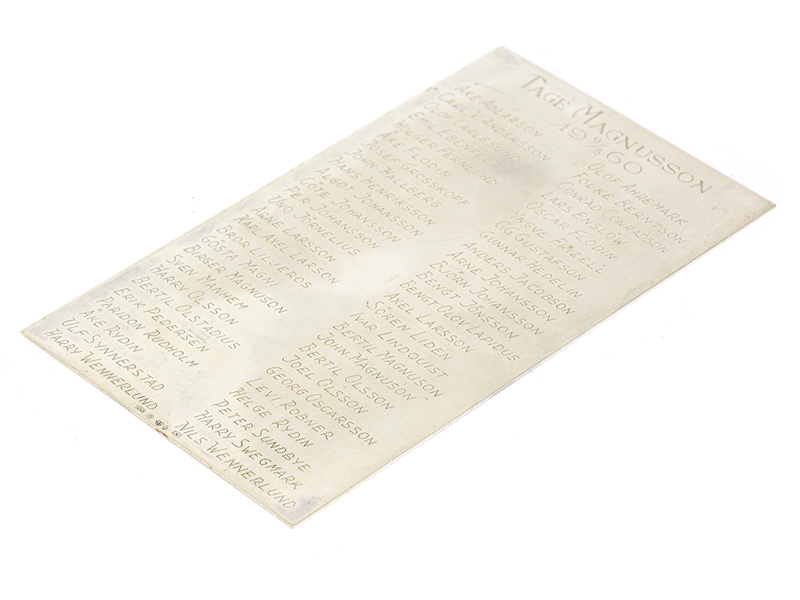 TAGE MAGNUSSON
19 9/8 60
ÅKE ADLARSON
CARL V. ANDERSSON
OLOF CARLESUND
EMIL EBENFELT
HOLGER FERNLUND
ÅKE FLODIN
JOSEF GROSSKOFF
JOHN HALLBERG
HANS HENRIKSSON
ALGOT JOHANSSON
GÖTE JOHANSSON
PER JOHANSSON
UNO JÖRNELIUS
ARNE LARSSON
KARL-AXEL LARSON
BROR LILLIEROS
GÖSTA MAGNI
BIRGER MAGNUSON
SVEN MANHEM
HARRY OLSSON
BERTIL OLSTADIUS
ERIK PEDERSEN
PARIDON RUDHOLM
ÅKE RYDIN
ULF SYNNERSTAD
HARRY WENNERLUND
OLOF AHREMARK
FOLKE BERNTSON
CONRAD CONRADSON
LARS ENSLÖW
OSCAR FLODIN
YNGVE FRIVELL
G.G. GUSTAFSON
GUNNAR HEDELIN
ANDERS JACOBSON
ARNE JOHANSSON
BJÖRN JOHANSSON
BENGT JÖNSSON
BENGT OLOV LAPIDUS
AXEL LARSSON
SÖREN LIDEN
IVAR LINDQUIST
BERTIL MAGNUSON
JOHN MAGNUSON
BERTIL OLSSON
JOEL OLSSON
GEORG OSCARSSON
LEVI ROBNER
HELGE RYDIN
PETER SUNDBYE
HARRY SWEGMARK
NILS WENNERLUND